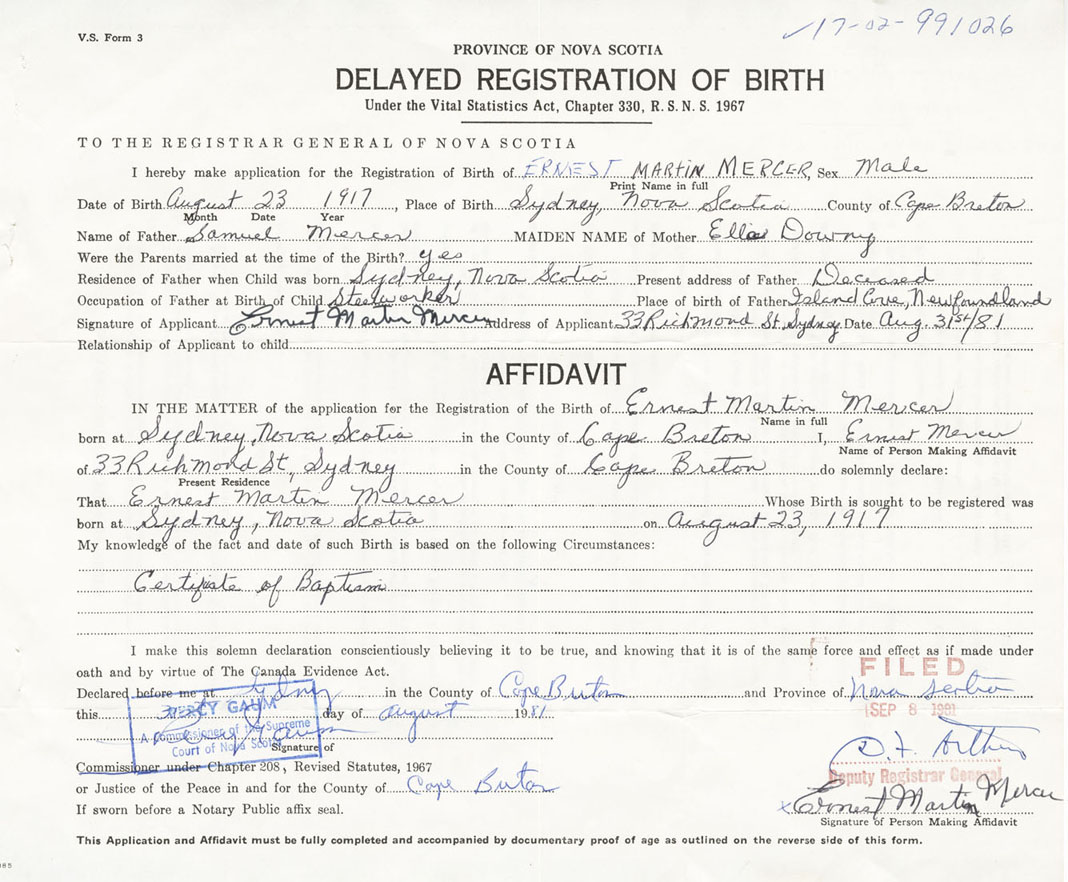 V.S. Form 3
17-02-991026
PROVINCE OF NOVA SCOTIA
DELAYED REGISTRATION OF BIRTH
Under the Vital Statistics Act, Chapter 330, R. S. N. S. 1967
TO THE REGISTRAR GENERAL OF NOVA SCOTIA
I hereby make application for the Registration of Birth of ERNEST MARTIN MERCER, Sex Male
Print Name in full
Date of Birth August 23 1917, Place of Birth Sydney, Nova Scotia County of Cape Breton
Month Date Year
Name of Father Samuel Mercer MAIDEN NAME of Mother Ella Downy
Were the Parents married at the time of the Birth? yes
Residence of Father when Child was born Sydney, Nova Scotia Present address of Father Deceased
Occupation of Father at Birth of Child Steelworker Place of birth of Father Island Cove, Newfoundland
Signature of Applicant Ernest Martin Mercer Address of Applicant 33 Richmond St, Sydney Date Aug. 31st/81
Relationship of Applicant to child
AFFIDAVIT
IN THE MATTER of the application for the Registration of the Birth of Ernest Martin Mercer
Name in full
born at Sydney, Nova Scotia in the County of Cape Breton I, Ernest Mercer
Name of Person Making Affidavit
of 33 Richmond St, Sydney in the County of Cape Breton do solemnly declare:
Present Residence
That Ernest Martin Mercer Whose Birth is sought to be registered was
born at Sydney, Nova Scotia on August 23, 1917
My knowledge of the fact and date of such Birth is based on the following Circumstances:
Certificate of Baptism
I make this solemn declaration conscientiously believing it to be true, and knowing that it is of the same force and effect as if made under
oath and by virtue of The Canada Evidence Act.
FILED
Declared before me at Sydney in the County of Cape Breton and Province of Nova Scotia
SEP 8 1981
this day of August 1981
MERCY GAUM
A Commissioner of the Supreme
Court of Nova Scotia
Signature of
Commissioner under Chapter 208, Revised Statutes, 1967
Deputy Registrar General
or Justice of the Peace in and for the County of Cape Breton
Ernest Martin Mercer
If sworn before a Notary Public affix seal.
Signature of Person Making Affidavit
This Application and Affidavit must be fully completed and accompanied by documentary proof of age as outlined on the reverse side of this form.